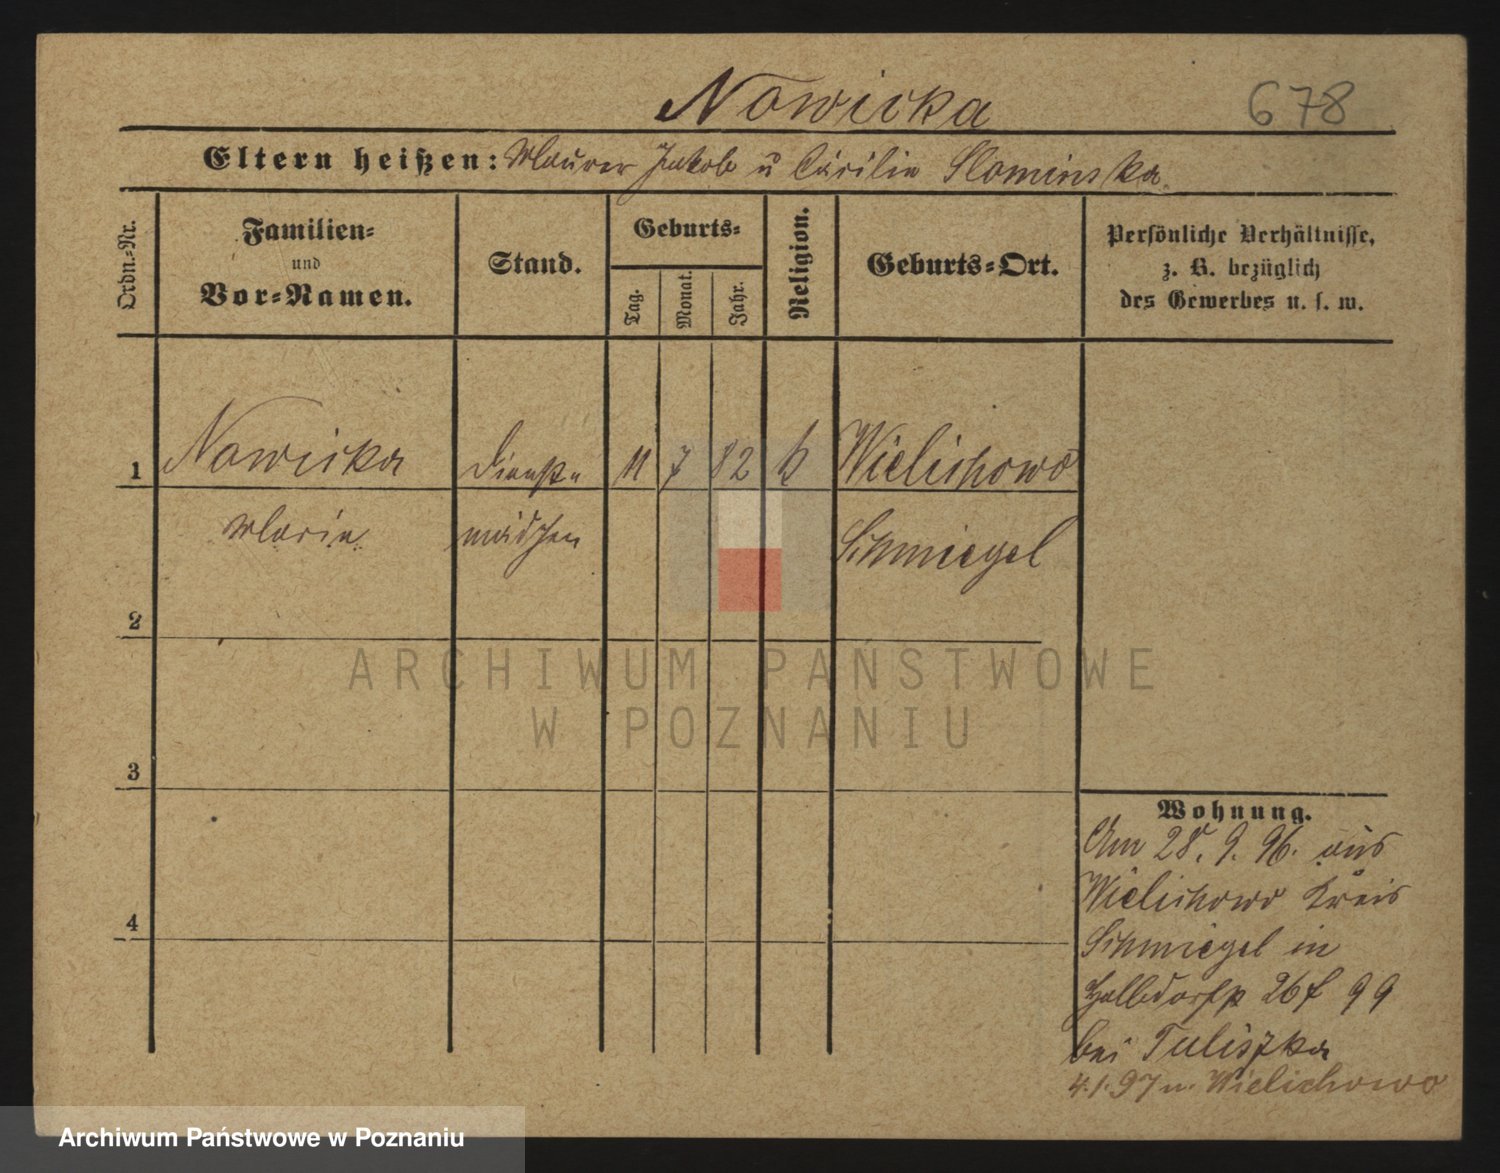 Nowicka
678
Eltern heißen: Maurer Jakob u Cäcilie Slominska
Ordn.-Nr.
Familien-
und
Vor-Namen.
Stand.
Geburts-
Tag.
Monat.
Jahr.
Religion.
Geburts-Ort.
Persönliche Verhältnisse,
z. B. bezüglich
des Gewerbes u. s. w.
1 Nowicka Dienst- 11 7 82 k Wielichowo
Marie mädchen Schmiegel
2
3
4
Wohnung.
Am 28. 9. 96. aus
Wielichowo Kreis
Schmiegel in
Halbdorfstr 26 99
bei Tuliszka
4.1.97 n. Wielichowo
ARCHIWUM PAŃSTWOWE
W POZNANIU
Archiwum Państwowe w Poznaniu